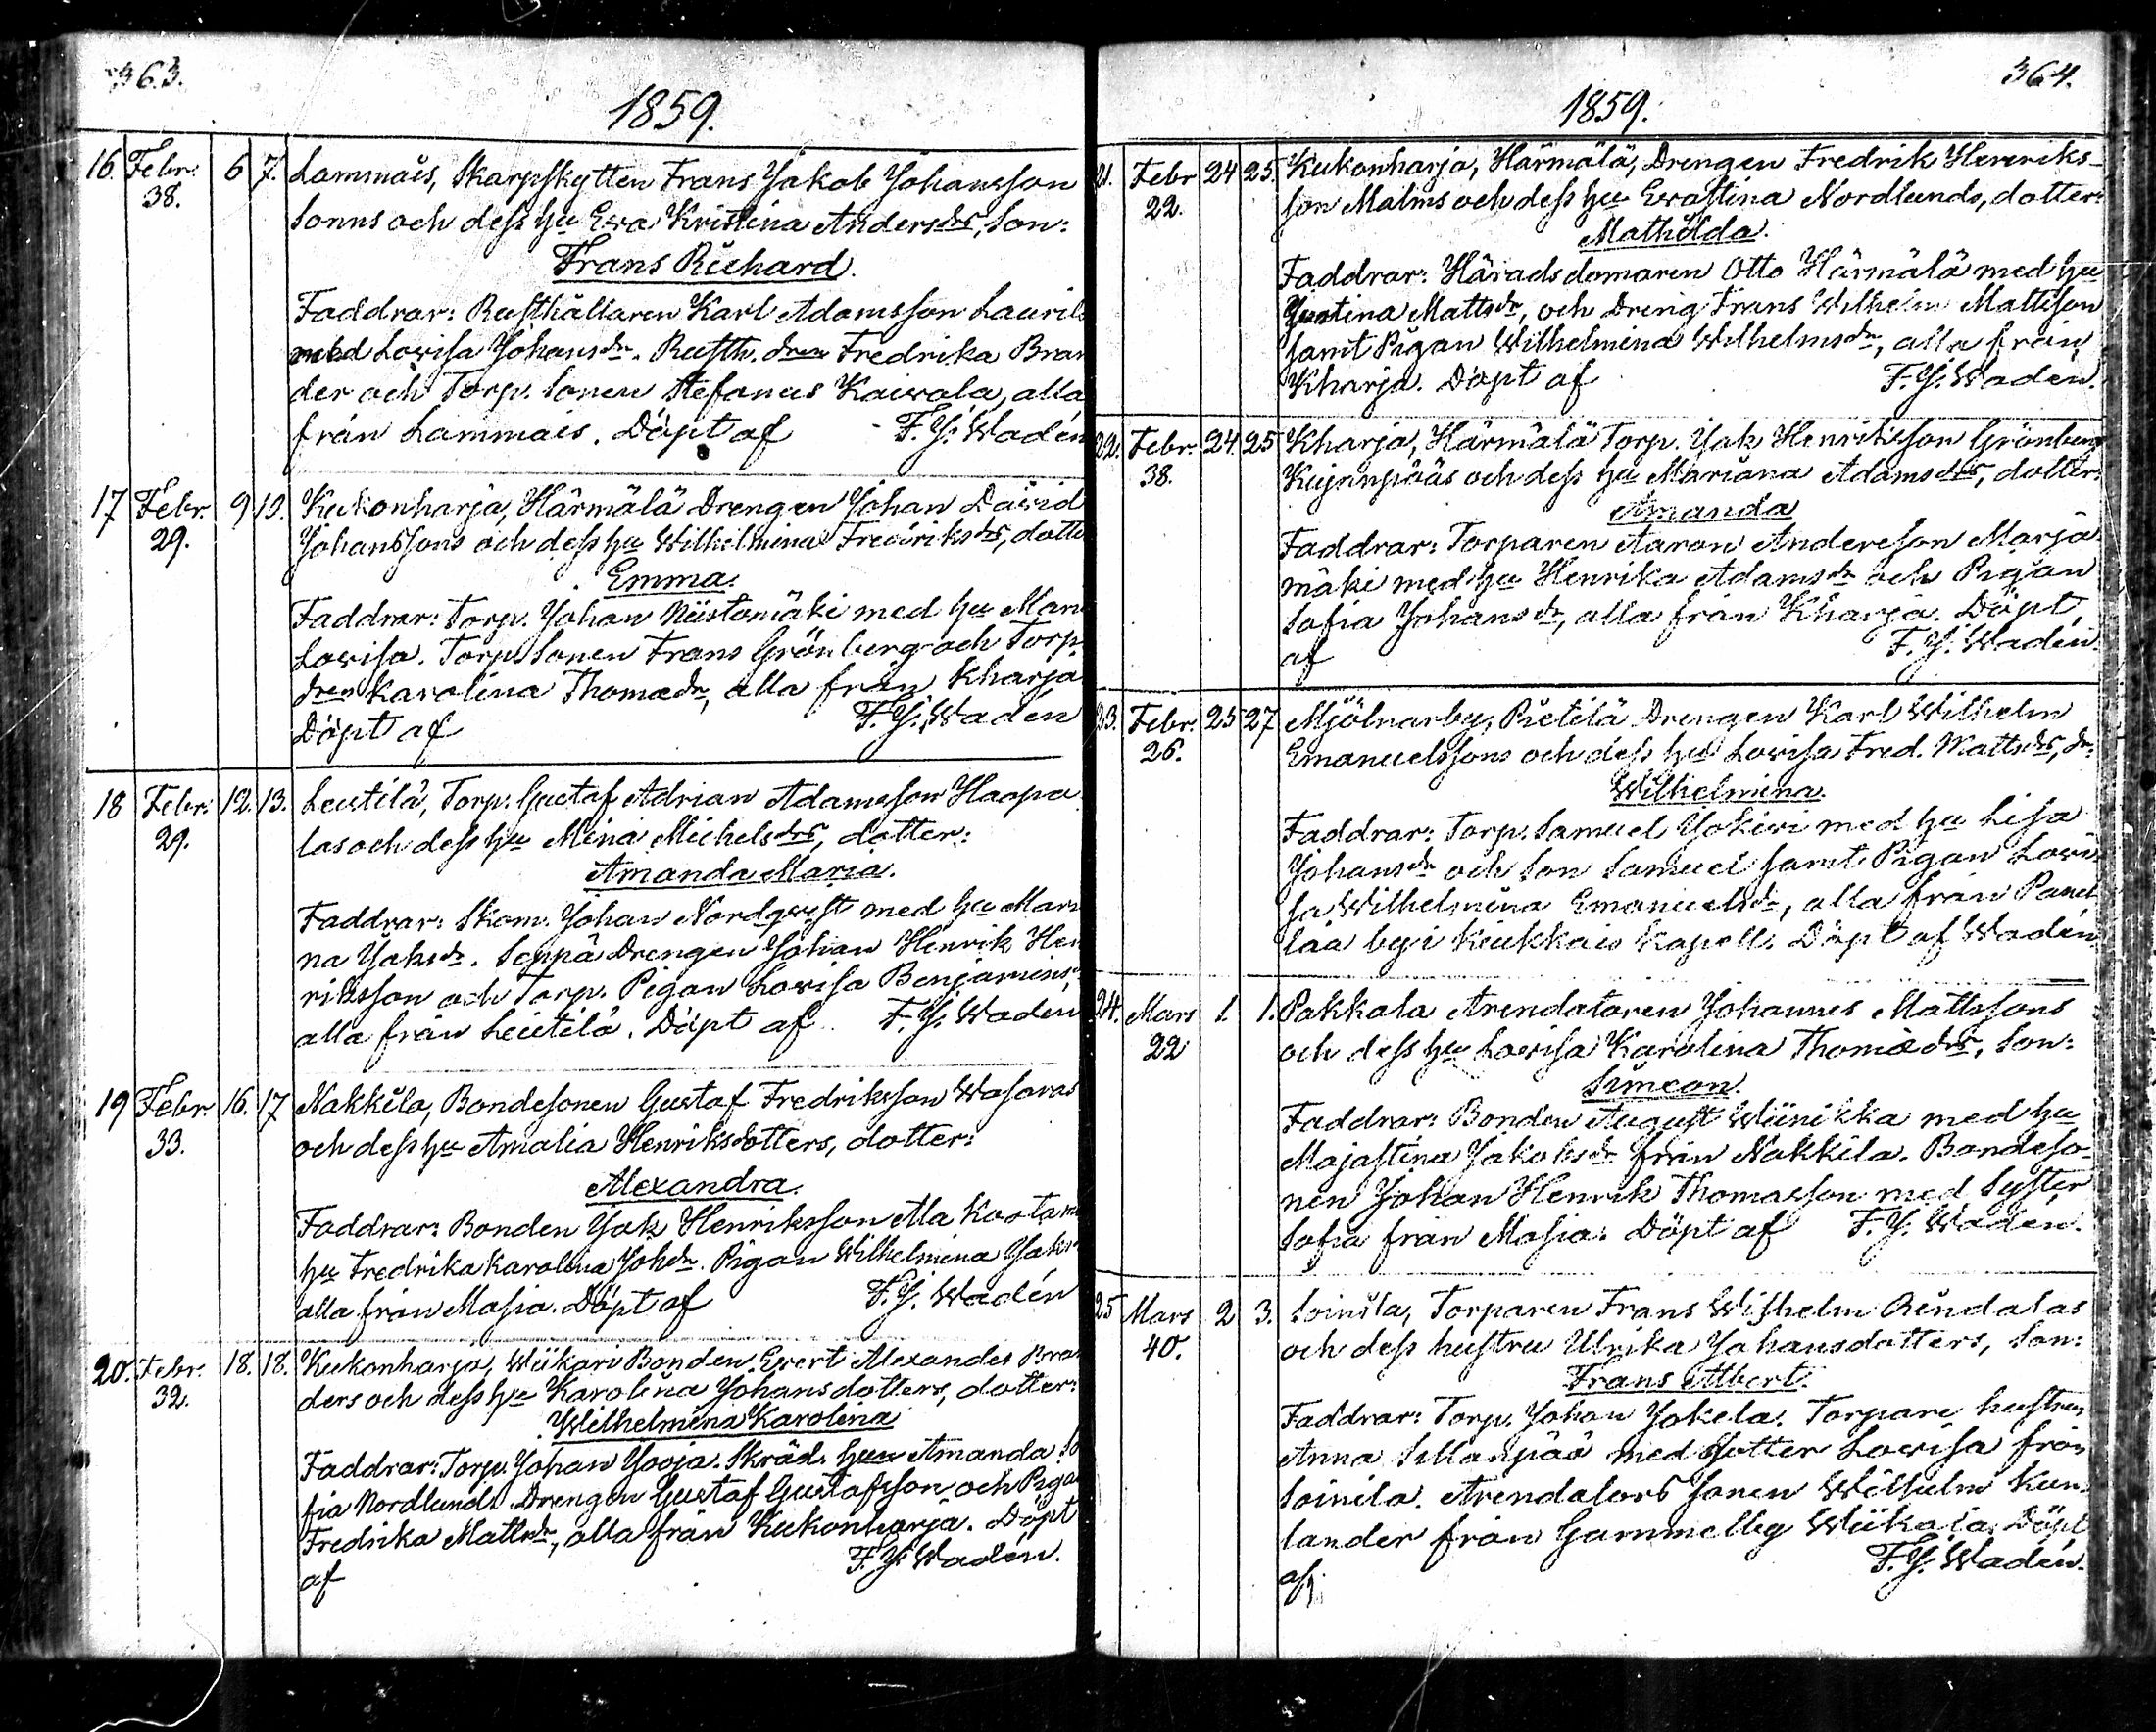 363.
1859.
16. Febr. 6 7. Lammais, Skarpskytten Frans Jakob Johansson
38. Sonns och dess hu Eva Kristina Andersdrs, son:
Frans Richard.
Faddrar: Rusthållaren Karl Adamsson Lauril
med Lovisa Johansdr. Rusth. dren Fredrika Bran
der och Torp. sonen Stefanus Kaivola, alla
från Lammais. Döpt af F. J. Wadén
17 Febr. 9 10. Kukonharja, Härmälä Drengen Johan David
29. Johanssons och dess hu Wilhelmina Fredriksdrs, dotte
Emma.
Faddrar: Torp. Johan Niistomäki med hu Mari
Lovisa. Torp. Sonen Frans Grönberg och Torp.
dren Karolina Thomædr, alla från Kharja
Döpt af F. J. Wadén
18 Febr: 12. 13. Leutilä, Torp. Gustaf Adrian Adamsson Haapa
29. las och dess hu Mina Michelsdrs, dotter:
Amanda Maria.
Faddrar: Skom. Johan Nordqwist med hu Mari
na Jaksdr. Seppä Drengen Johan Henrik Hen
riksson och Torp. Pigan Lovisa Benjamins
alla från Leutilä. Döpt af F. J. Wadén
19 Febr. 16. 17 Nakkila, Bondesonen Gustaf Fredriksson Wasaras
33. och dess hu Amalia Henriksdotters, dotter:
Alexandra.
Faddrar: Bonden Jak Henriksson Ala Kosta m
hu Fredrika Karolina Johdr. Pigan Wilhelmina Jaks
alla från Masia. Döpt af F. J. Wadén
20. Febr. 18. 18. Kukonharja, Wiikari Bonden Evert Alexander Bran
32. ders och dess hu Karolina Johansdotters, dotter:
Wilhelmina Karolina
Faddrar: Torp. Johan Jooja. Skräd. hun Amanda So
fia Nordlund. Drengen Gustaf Gustafsson och Piga
Fredrika Mattsdr, alla från Kukonharja. Döpt
af F. J. Wadén.
364.
1859.
21. Febr 24 25. Kukonharja, Härmälä, Drengen Fredrik Henriks-
22. son Malms och dess hu Evastina Nordlunds, dotter:
Mathilda.
Faddrar: Häradsdomaren Otto Härmälä med hu
Justina Mattsdr, och Dreng Frans Wilhelm Mattsson
samt Pigan Wilhelmina Wilhelmsdr, alla från
Kharja. Döpt af F. J. Wadén.
22. Febr. 24. 25 Kharja, Härmälä Torp. Jak Henriksson Grönberg
38. Kujanpääs och dess hu Mariana Adamsdrs, dotter:
Amanda
Faddrar: Torparen Aaron Andersson Marja
mäki med hu Henrika Adamsdr och Pigan
Sofia Johansdr, alla från Kharja. Döpt
af F. J. Wadén.
23. Febr. 25 27 Mjölnarby, Pietilä Drengen Karl Wilhelm
26. Emanuelssons och dess hu Lovisa Fred. Mattsdrs, dr:
Wilhelmina.
Faddrar: Torp. Samuel Jokivi med hu Lisa
Johansdr och Son Samuel samt Pigan Lovi
sa Wilhelmina Emanuelsdr, alla från Panel
laa by i Kiukkais Kapell. Döpt af Wadén
24. Mars 1. 1. Pakkala Arendatoren Johannes Mattssons
22 och dess hu Lovisa Karolina Thomædrs, son:
Simeon.
Faddrar: Bonden August Wiinikka med hu
Majastina Jakobsdr från Nakkila. Bondeso-
nen Johan Henrik Thomasson med Syster
Sofia från Masia. Döpt af F. J. Wadén.
25 Mars 2 3. Soinila, Torparen Frans Wilhelm Rindalas
40. och dess hustru Ulrika Johansdotters, son:
Frans Albert.
Faddrar: Torp. Johan Jokela. Torpare hustrun
Anna Sillanpää med dotter Lovisa från
Soinila. Arendators sonen Wilhelm Kun
lander från Gammelby Wiikala. Döpt
af F. J. Wadén.